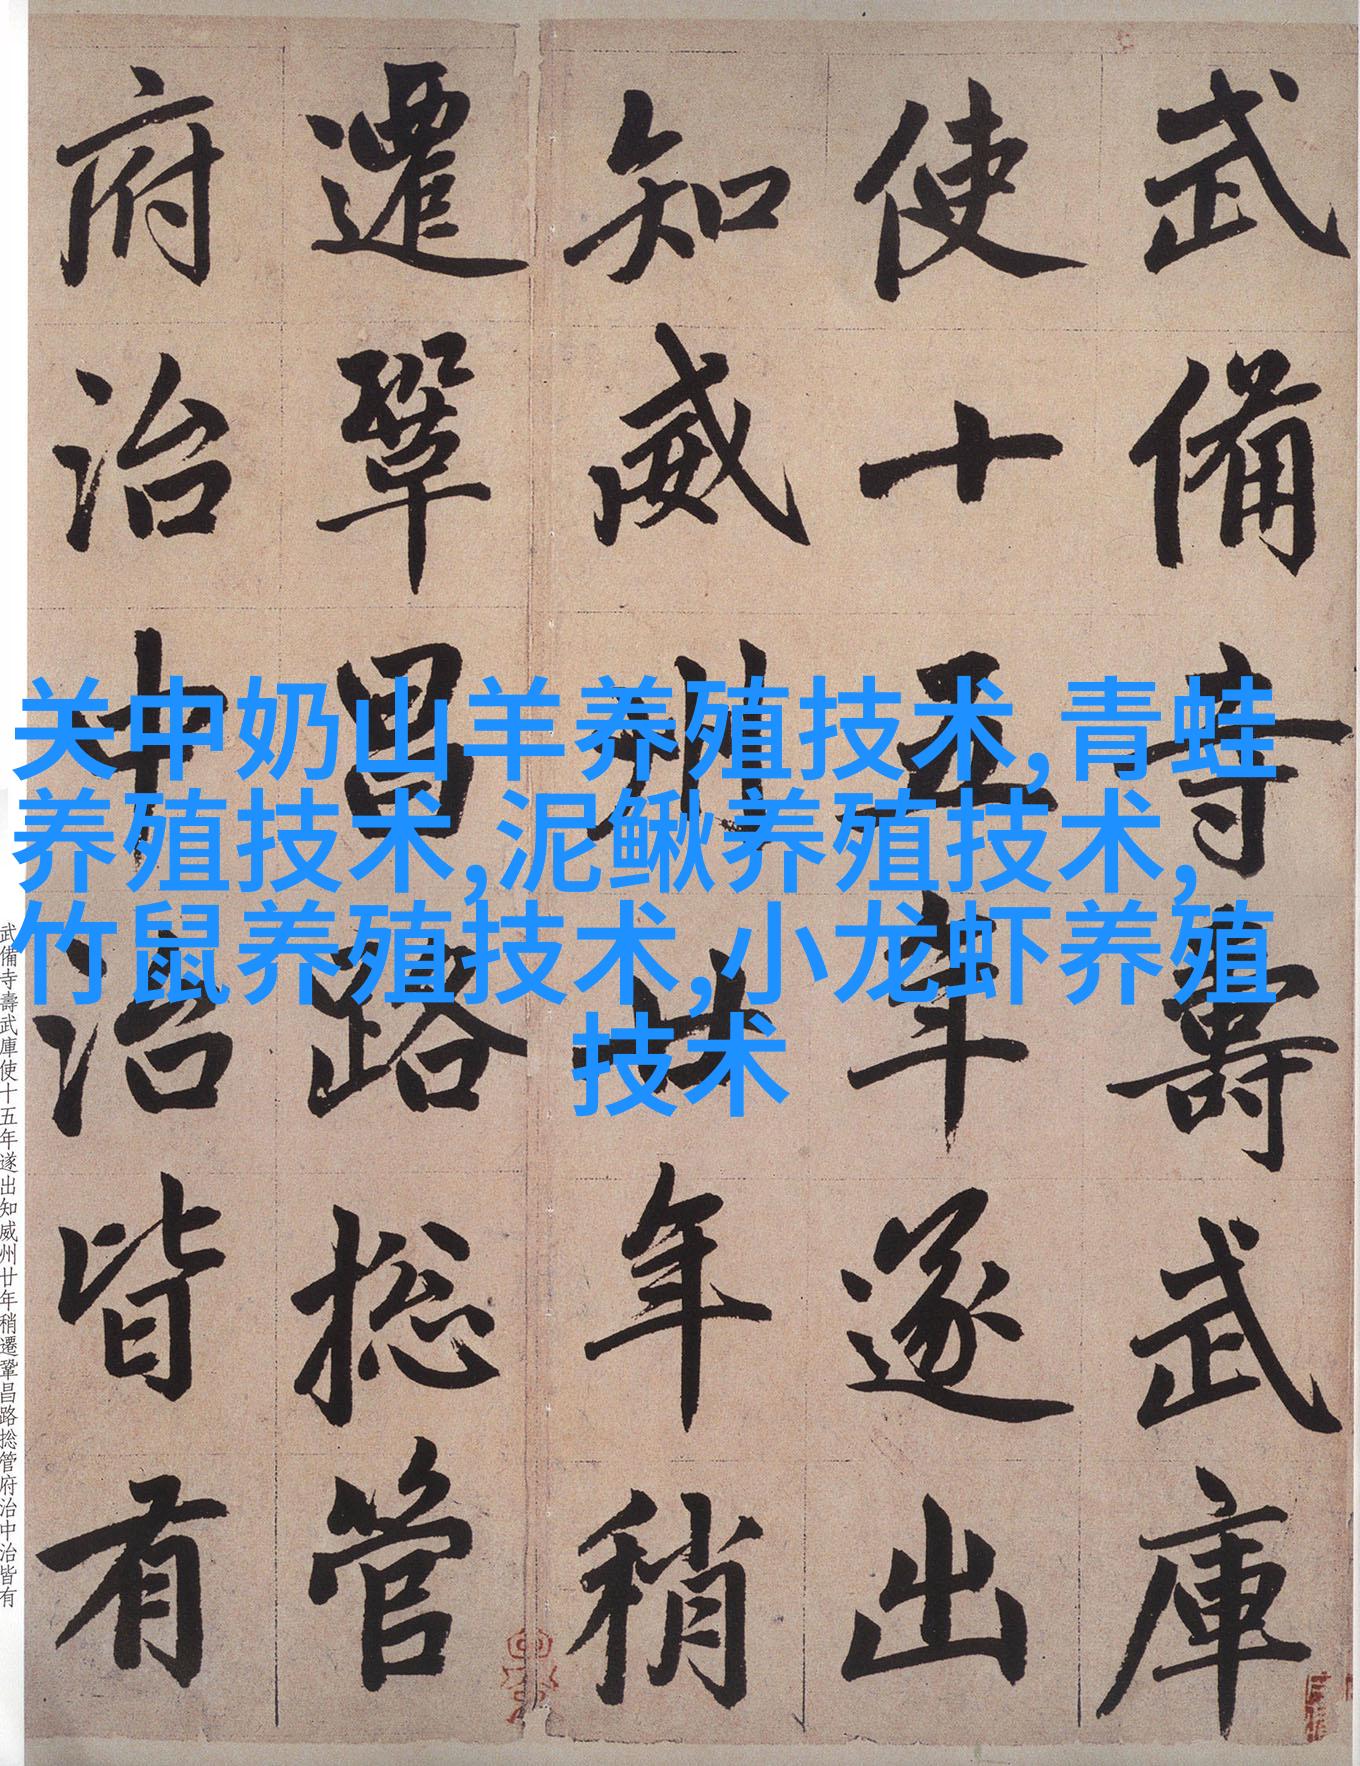 武備寺壽武庫
使十五年遂出
知威州廿年稍
遷鞏昌路捴管
府治中治皆有
关中奶山羊养殖技术,青蛙
养殖技术,泥鳅养殖技术,
竹鼠养殖技术,小龙虾养殖
技术
武備寺壽武庫使十五年遂出知威州廿年稍遷鞏昌路捴管府治中治皆有